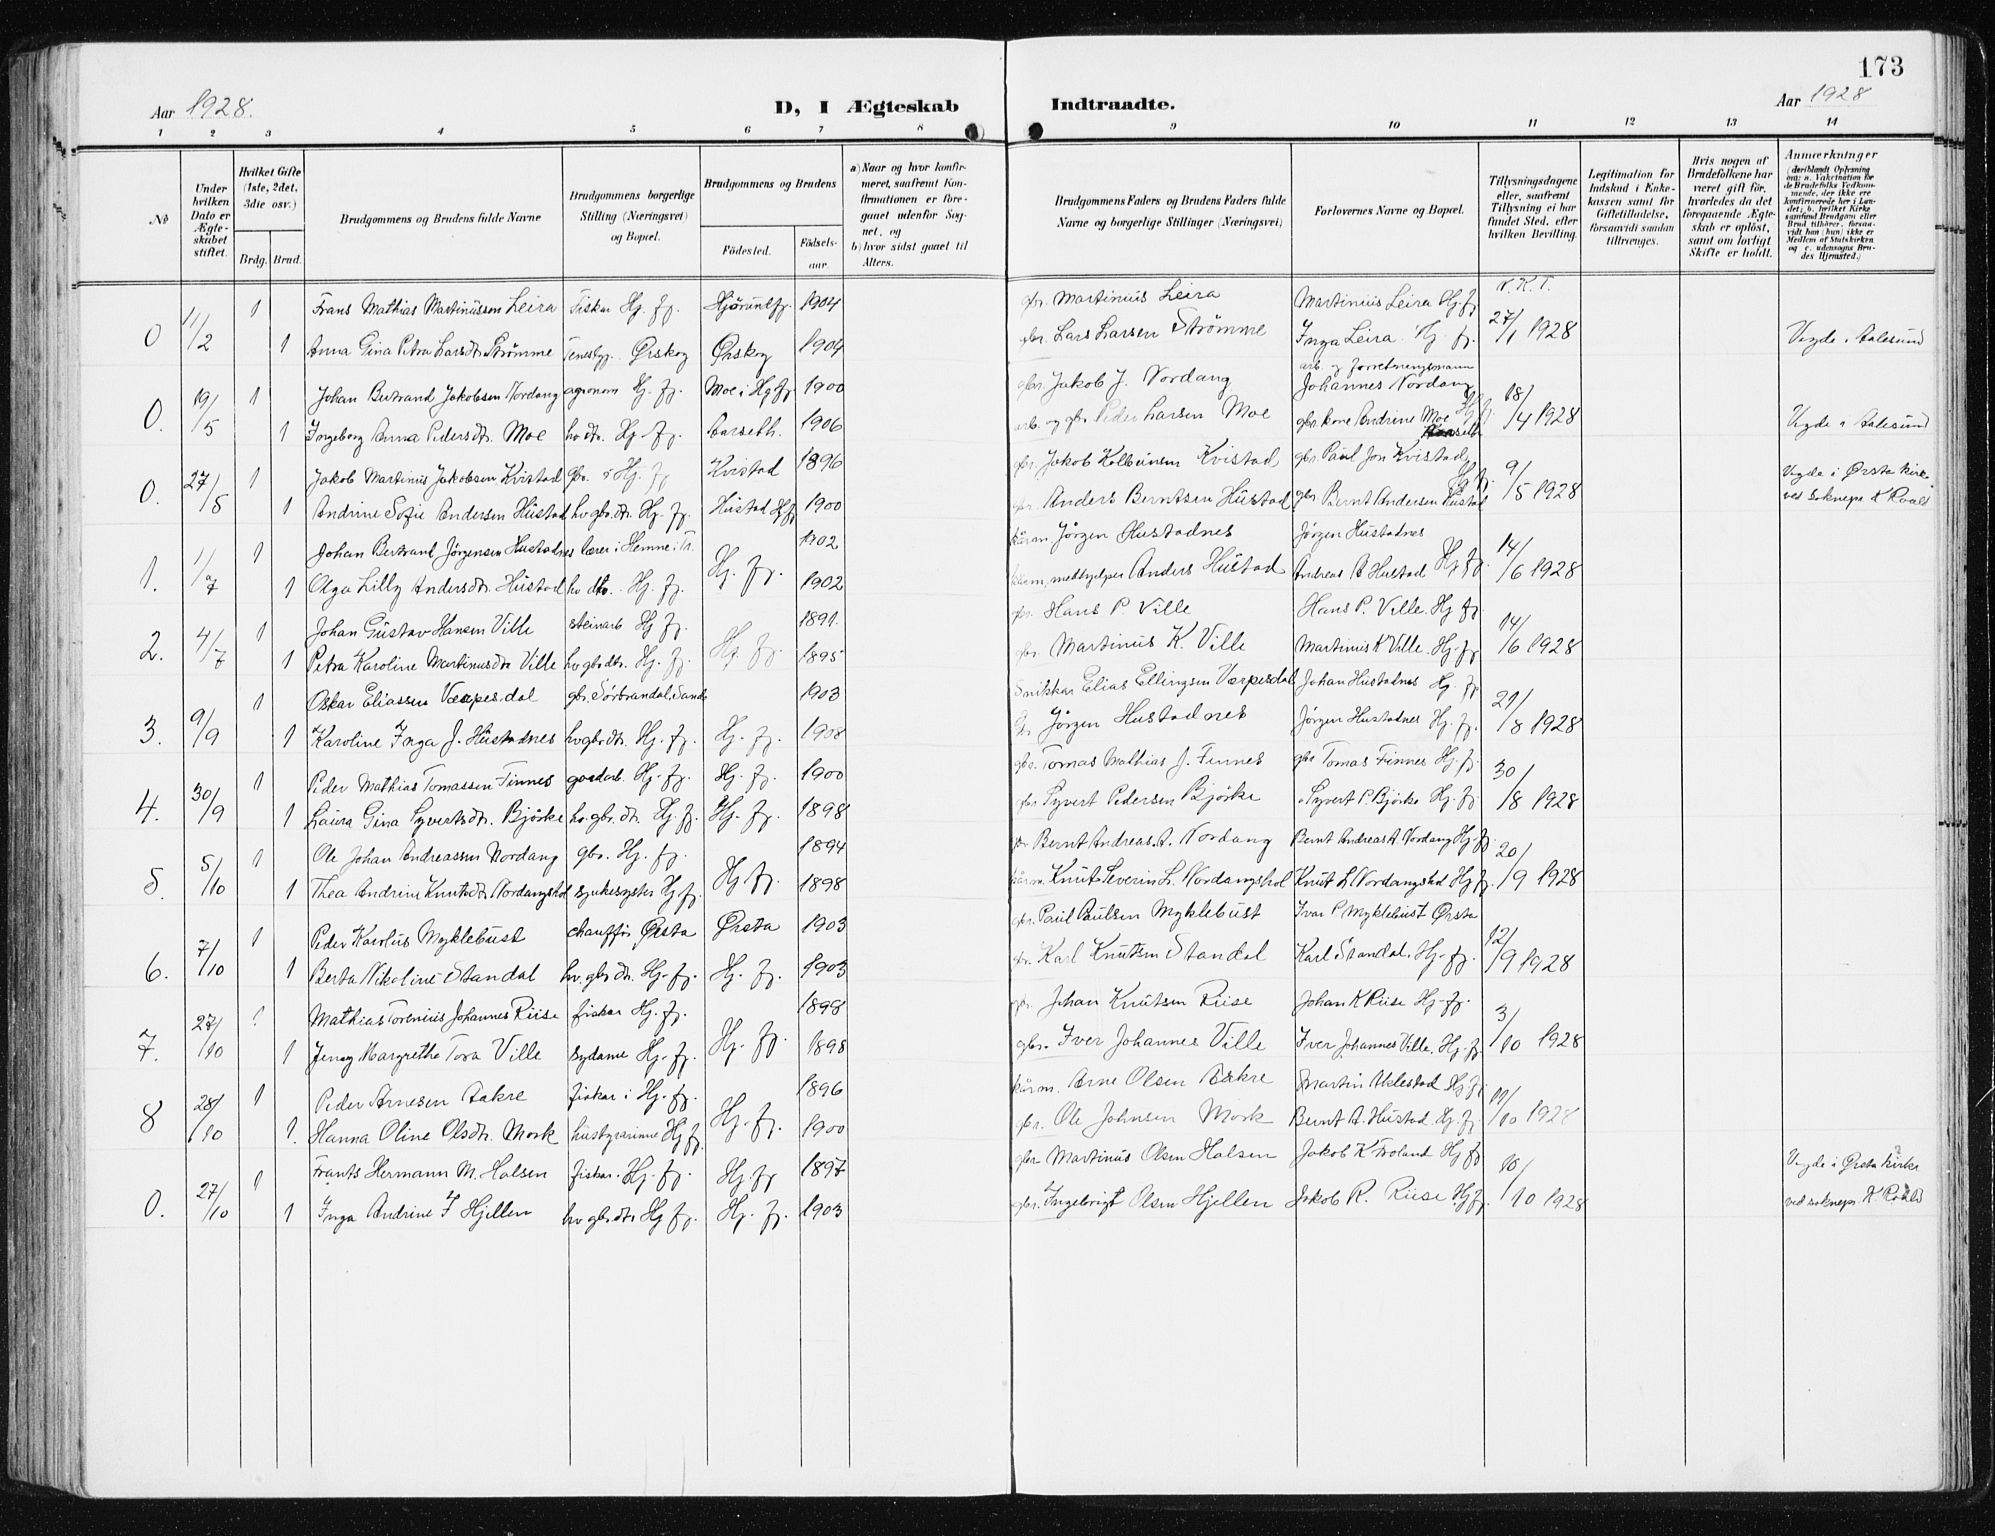 173
Aar 1928.
D, I Ægteskab Indtraadte.
Aar 1928
1 2 3 4 5 6 7 8 9 10 11 12 13 14
№
Under hvilken Dato er Ægteskabet stiftet.
Hvilket Gifte (1ste, 2det, 3die osv.)
Brdg. Brud.
Brudgommens og Brudens fulde Navne
Brudgommens borgerlige Stilling (Næringsvei) og Bopæl.
Brudgommens og Brudens
Fødested.
Fødselsaar.
a) Naar og hvor konfirmeret, saafremt Konfirmationen er foregaaet udenfor Sognet, og
b) hvor sidst gaaet til Alters.
Brudgommens Faders og Brudens Faders fulde Navne og borgerlige Stillinger (Næringsvei)
Forlovernes Navne og Bopæl.
Tillysningsdagene eller, saafremt Tillysning ei har fundet Sted, efter hvilken Bevilling.
Legitimation for Indskud i Enkekassen samt for Giftetilladelse, forsaavidt saadan tiltrænges.
Hvis nogen af Brudefolkene har været gift før, hvorledes da det foregaaende Ægteskab er opløst, samt om lovligt Skifte er holdt.
Anmerkninger
(deriblandt Oplysning om: a. Vakcination for de Brudefolks Vedkommende, der ikke ere konfirmerede her i Landet; b. hvilket Kirkesamfund Brudgom eller Brud tilhører, forsaavidt han (hun) ikke er Medlem af Statskirken og c. udensogns Brudes Hjemsted.)
0 11/2 1 Frans Mathias Martinussen Leira Fiskar Hj. fj. Hjørundfj. 1904 gbr. Martinius Leira Martinius Leira Hj. fj. V.K.T. 27/1 1928
1 Anna Gina Petra Larsdtr. Strømme Ørskog Ørskog 1904 gbr. Lars Larsen Strømme Inga Leira Hj. fj. Vigde i Aalesund
0. 19/5 1 Johan Bertrand Jakobsen Nordang agronom Hj. fj. Moe i Hj fj 1900 gbr. Jakob J. Nordang arb. og forretningsmann Johannes Nordang 18/4 1928
1 Ingeborg Anna Pedersdtr. Moe hv. dtr. Hj. fj. Aarseth. 1906 arb. og gbr. Peder Larsen Moe gbr. kone Andrine Moe Hj. fj. Vigde i Aalesund
0. 27/5 1 Jakob Martinus Jakobsen Kvistad gbr. i Hj. fj Kvistad 1896 gbr. Jakob Kolbeinsen Kvistad gbr. Paul Jon Kvistad 9/5 1928 Vigde i Ørsta kirke
1 Andrine Sofie Andersen Hustad hv. gbr. dtr. Hj. fj. Hustad Hj fj 1900 gbr. Anders Berntsen Hustad gbr. Bernt Andersen Hustad ved soknepr K Roald
1. 11/7 1 Johan Bertrand Jørgensen Hustadnes lærer i Hemne i Tr. Hj. fj. 1902 kårm. Jørgen Hustadnes Jörgen Hustadnes 14/6 1928
1 Olga Lilly Andersdtr. Hustad hv dtr. Hj. fj. 1902 medhjelper Anders Hustad Andreas A Hustad Hj fj.
2. 4/7 1 Johan Gustav Hansen Ville steinarb Hj fj. Hj. fj. 1891. gbr. Hans P. Ville Hans P. Ville. Hj fj. 14/6 1928
1 Petra Karoline Martinusdtr Ville hv gbr dtr. Hj. fj. 1895 gbr. Martinus K. Ville Martinus K Ville. Hj. fj
3. 9/9 1 Oskar Eliassen Værpesdal gbr. Sørbrandal, Sande 1903 Snikkar Elias Ellingsen Værpesdal Johan Hustadnes Hj fj. 21/8 1928
1 Karoline Inga J. Hustadnes hv gbr dtr. Hj. fj. Hj. fj. 1908 Jørgen Hustadnes Jørgen Hustadnes Hj. fj.
4. 30/9 1 Peder Mathias Tomassen Finnes gardarb. Hj. fj. Hj. fj. 1900 gbr. Tomas Mathias J. Finnes gbr Tomas Finnes Hj. fj. 30/8 1928
1 Laura Gina Syvertsdtr. Bjørke hv. gbr. dtr. Hj. fj. Hj. fj. 1898 gbr Syvert Pedersen Bjørke Syvert P. Bjørke Hj. fj
5. 5/10 1 Ole Johan Andreassen Nordang gbr. Hj. fj. Hj. fj. 1894 gbr. Bernt Andreas A. Nordang Bernt Andreas A Nordang Hj. fj. 20/9 1928
1 Thea Andrine Knutsdtr. Nordangshol sjukesyster Hj fj. 1898 kårm. Knut Severin L. Nordangshol Knut L Nordangshol Hj fj.
6. 7/10 1 Peder Karolus Myklebust chauffør Ørsta Ørsta 1903 gbr. Paul Paulsen Myklebust Ivar P Myklebust Ørsta 12/9 1928
1 Berta Nikoline Standal hv. gbr dtr. Hj. fj. Hj. fj. 1903 gbr. Karl Knutsen Standal Karl Standal. Hj. fj.
7. 27/10 1 Mathias Torenius Johannes Riise fiskar Hj. fj. Hj. fj. 1899 gbr. Johan Knutsen Riise Johan K Riise Hj. fj. 3/10 1928
1 Jenny Margrethe Tora Ville sydame Hj. fj. 1898 gbr. Iver Johannes Ville Iver Johannes Ville. Hj. fj
8 28/10 1 Peder Arnesen Aakre fiskar i Hj. fj. Hj. fj. 1896 kårm. Arne Olsen Aakre Martin Aklestad Hj fj. 11/10 1928
1. Hanna Oline Olsdtr. Mork husstyrarinne Hj fj. 1900 gbr. Ole Johnsen Mork Bernt A. Hustad Hj. fj.
0. 27/10 1 Frants Hermann M. Halsen fiskar. Hj. fj. Hj. fj 1897 gbr Martinus Olsen Halsen Jakob K Troland Hj fj 10/10 1928 Vigde i Ørsta kirke
1 Inga Andrine I Hjellen hv gbr. dtr Hj fj. Hj. fj. 1903 gbr. Ingebrigt Olsen Hjellen Jakob R. Riise Hj. fj. ved soknepr. K Roald